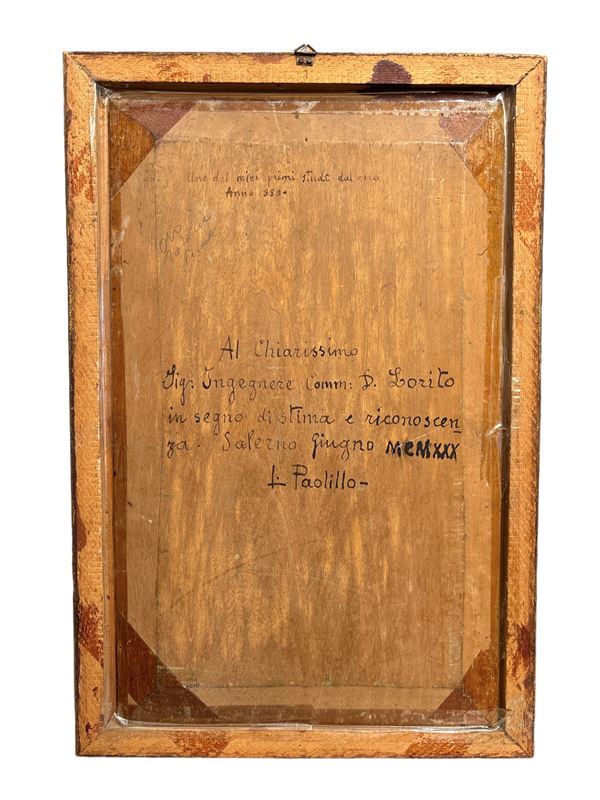 Uno dei miei primi studi dal vero
Anno 889-
Al Chiarissimo
Sig: Ingegnere Comm: D. Lorito
in segno di stima e riconoscen
za. Salerno Giugno MCMXXX
L. Paolillo-